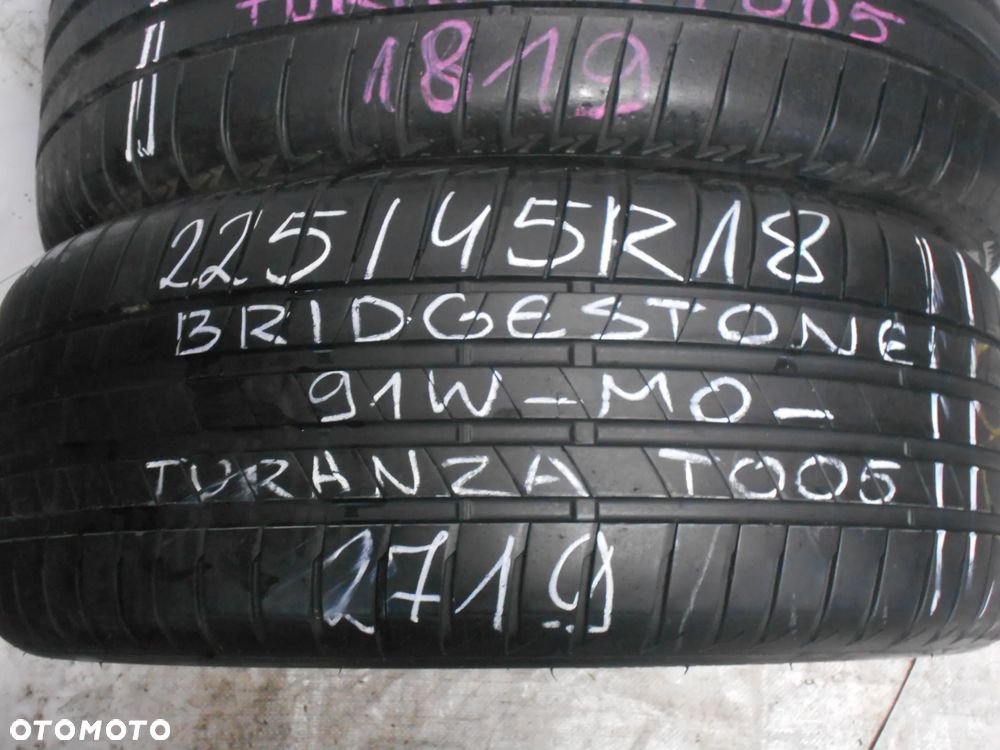 1819
225/45R18
BRIDGESTONE
91W-MO-
TURANZA T005
2719
OTOMOTO